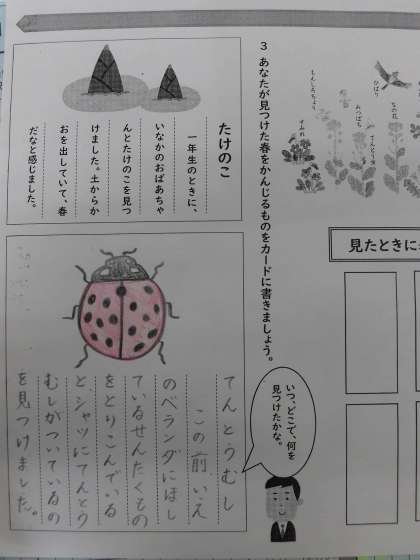 もんしろちょう
すみれ
みつばち
てんとう虫
なの花
ひばり
見たときに
3 あなたが見つけた春をかんじるものをカードに書きましょう。
たけのこ
一年生のときに、
いなかのおばあちゃ
んとたけのこを見つ
けました。土からか
おを出していて、春
だなと感じました。
いつ、どこで、何を
見つけたかな。
てんとうむし
この前、いえ
のベランダにほし
ているせんたくもの
をとりこんでいる
とシャツにてんとう
むしがついているの
を見つけました。